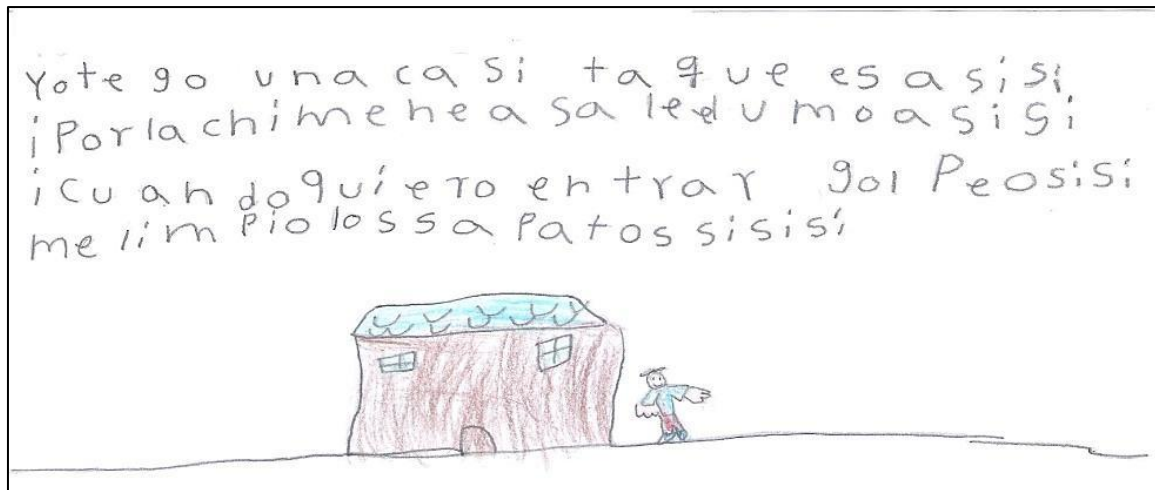 Yote go una ca si ta que es a sí si
¡Por la chimenea sa ledumo a si si
¡Cuando quíero entrar gol Peosisi
me lim Pio los sa Patos sisisí